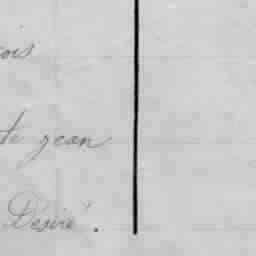 ois
te jean
Desiré.